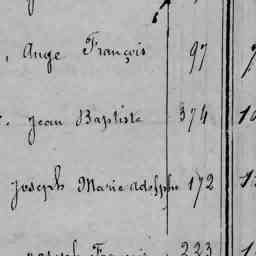 , Ange François 97
Jean Baptiste 374
Joseph Marie Adolphe 172
223